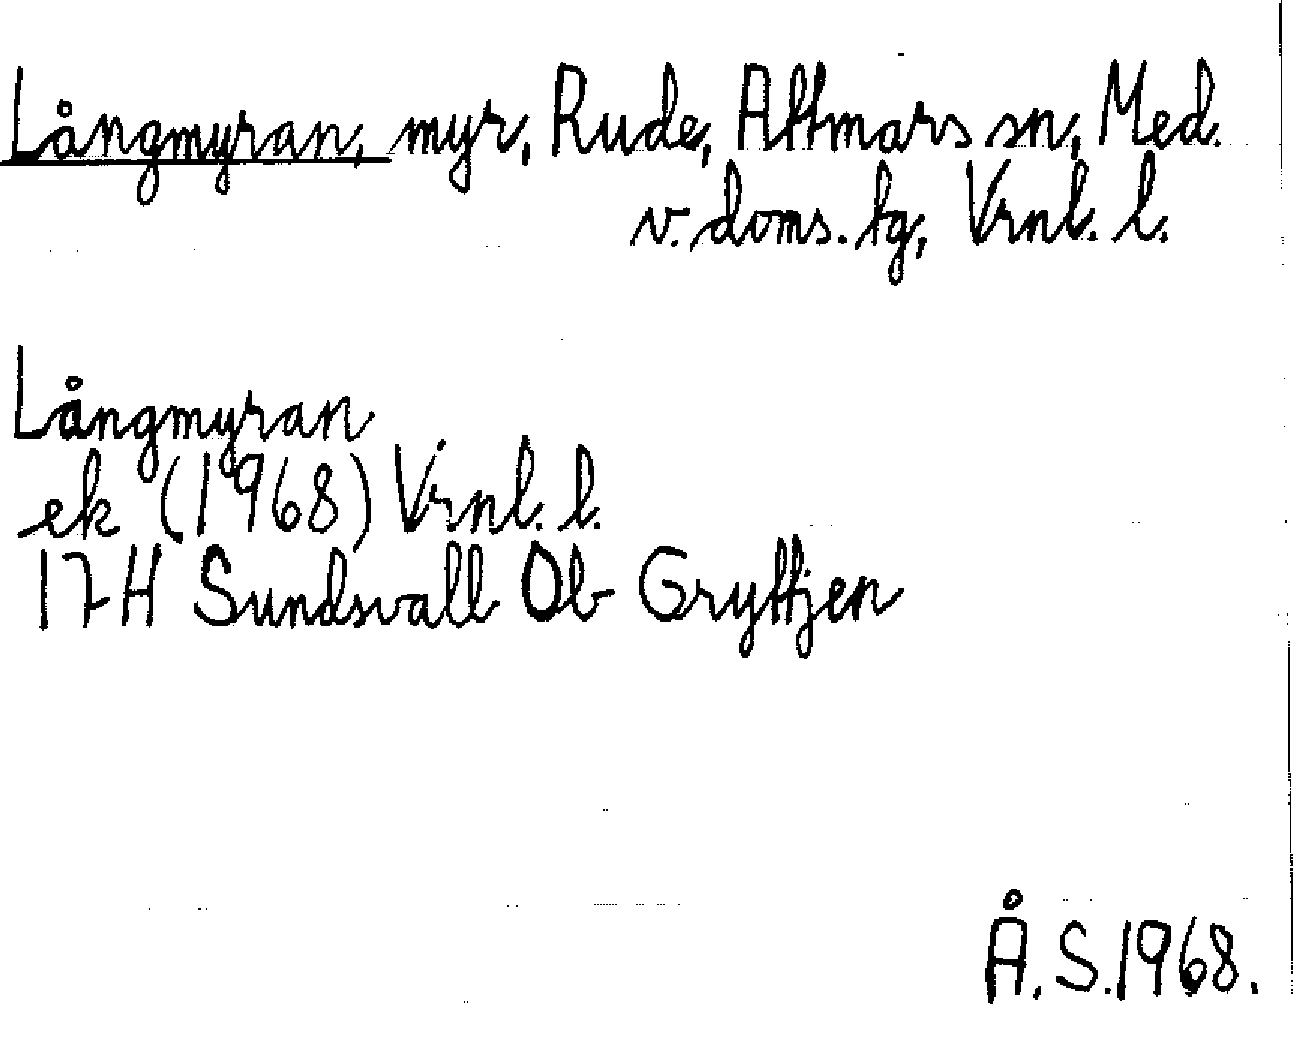 Långmyran, myr, Rude, Attmars sn, Med.
v. doms. tg, Vrnl. l.
Långmyran
ek (1968) Vrnl. l.
17H Sundsvall Ob Gryttjen
Å. S. 1968.